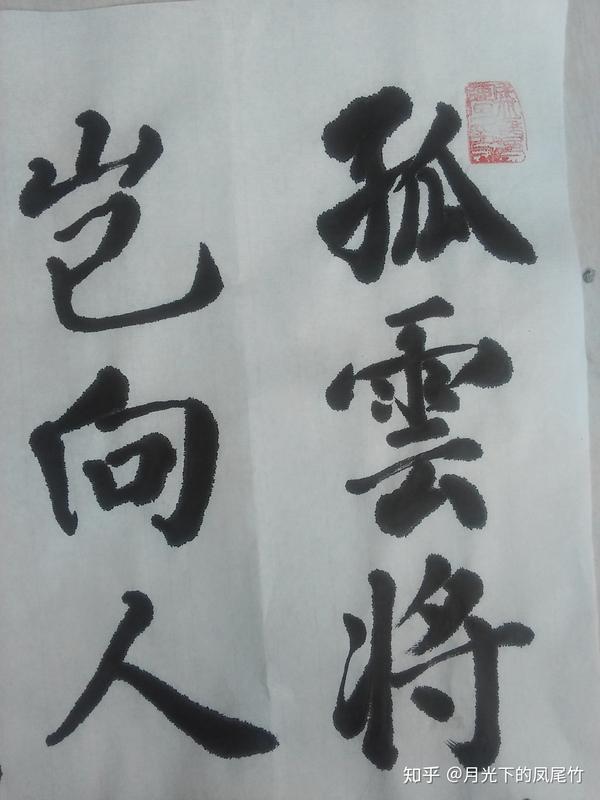 孤雲将
岂向人
知乎 @月光下的凤尾竹